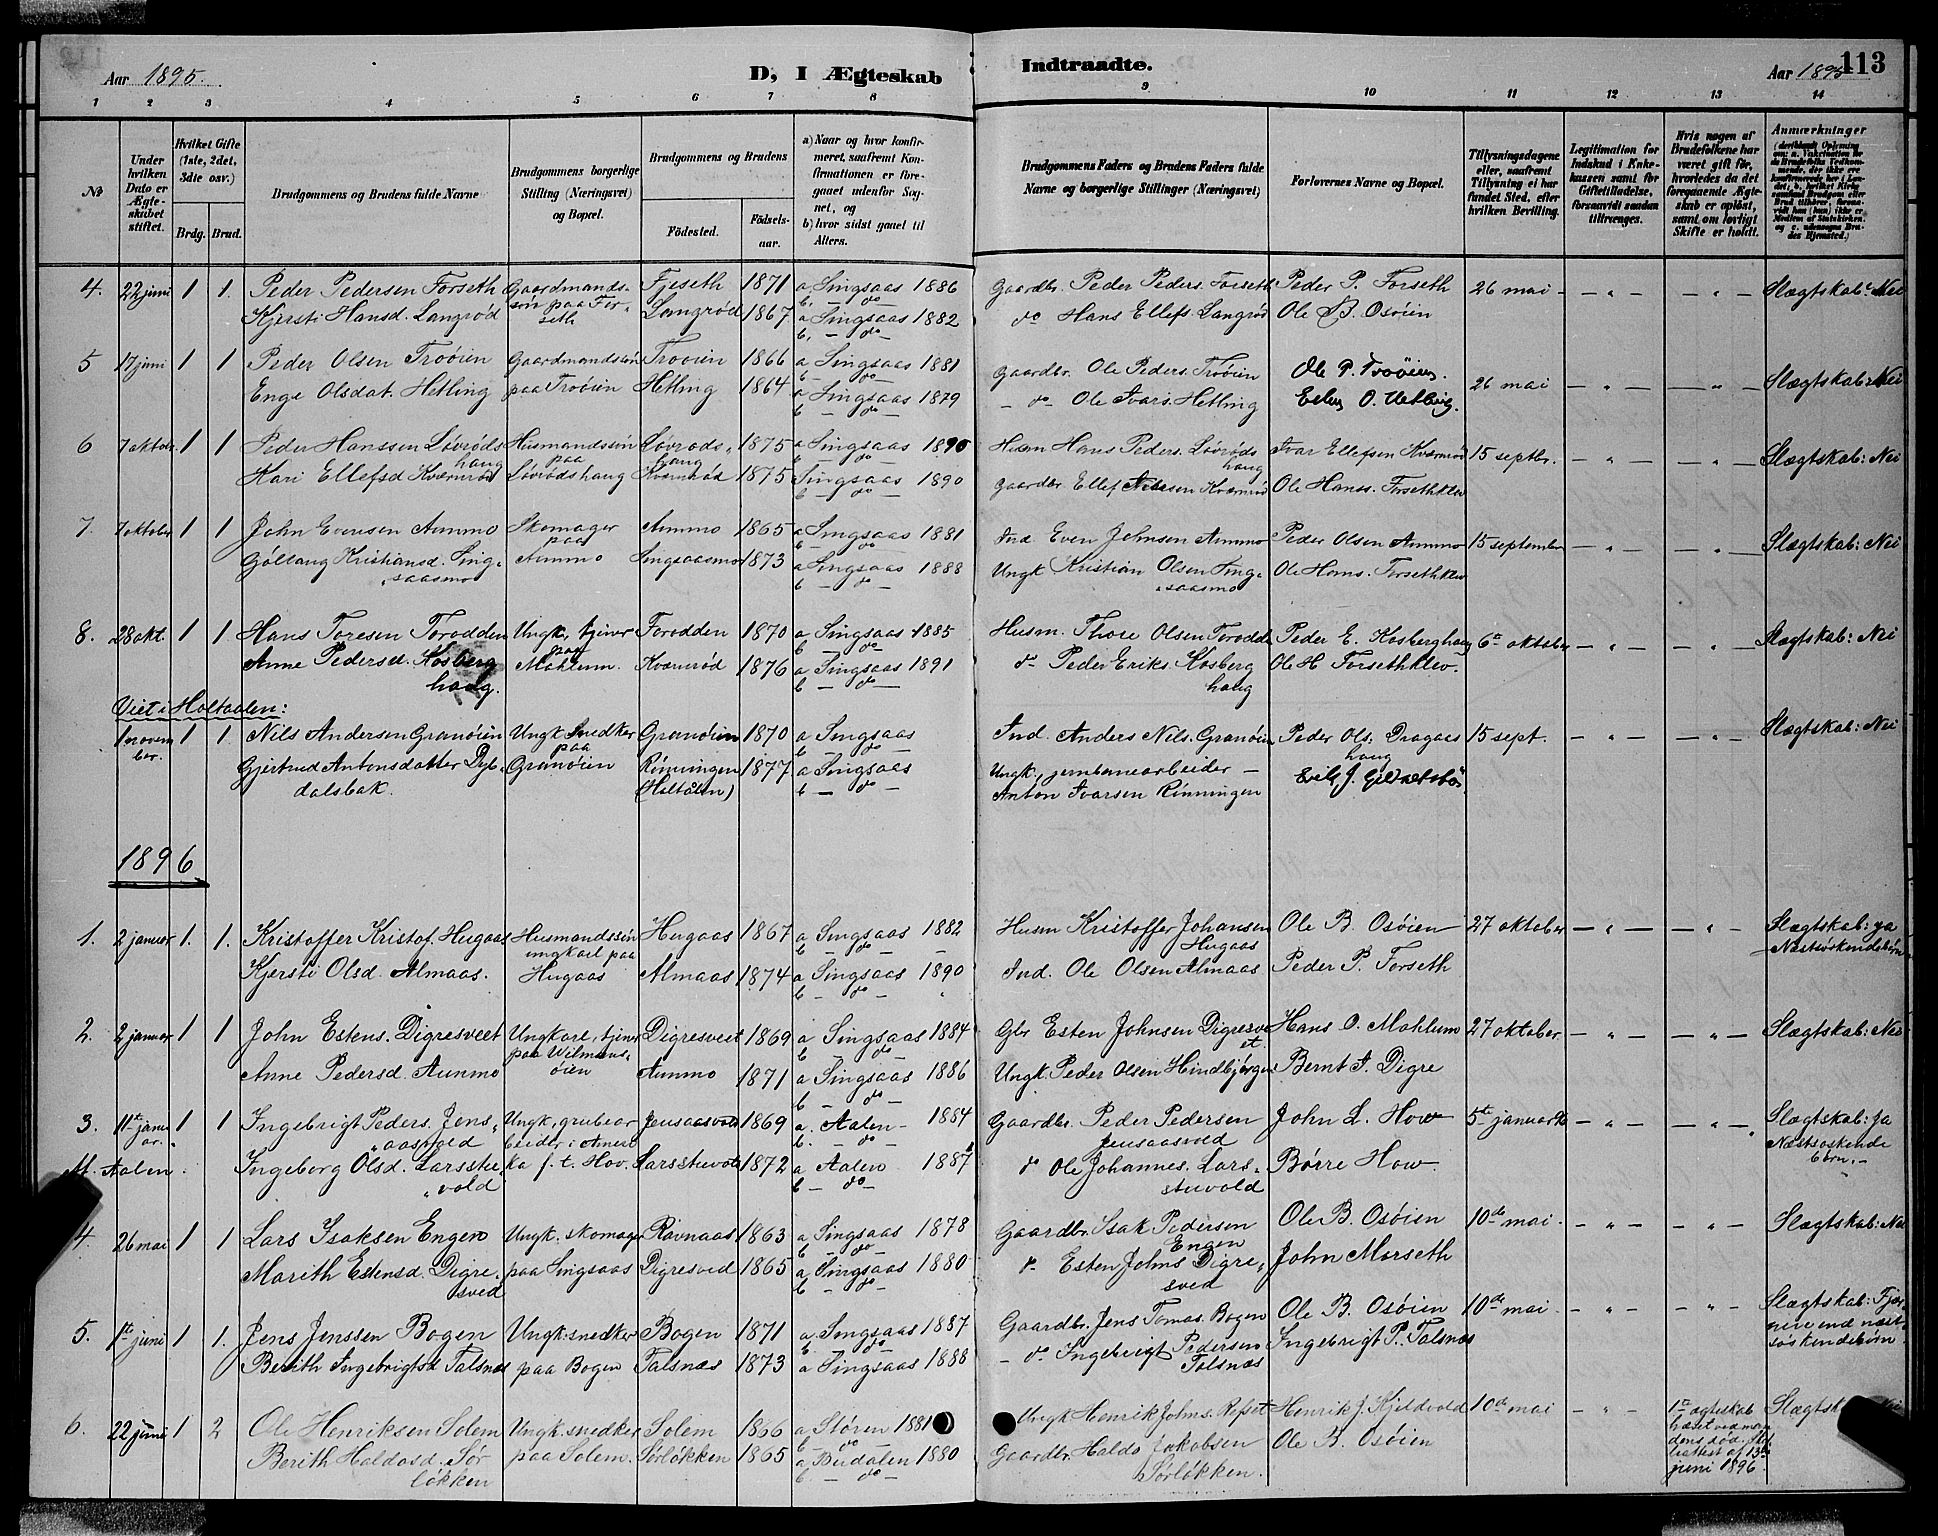 113
Aar 1895.
D, I Ægteskab Indtraadte.
Aar 1895
1 2 3 4 5 6 7 8 9 10 11 12 13 14
No
Under hvilken Dato er Ægteskabet stiftet.
Hvilket Gifte (1ste, 2det, 3die osv.)
Brdg. Brud.
Brudgommens og Brudens fulde Navne
Brudgommens borgerlige Stilling (Næringsvei) og Bopæl.
Brudgommens og Brudens
Fødested. Fødselsaar.
a) Naar og hvor konfirmeret, saafremt Konfirmationen er foregaaet udenfor Sognet, og
b) hvor sidst gaaet til Alters.
Brudgommens Faders og Brudens Faders fulde Navne og borgerlige Stillinger (Næringsvei)
Forlovernes Navne og Bopæl.
Tillysningsdagene eller, saafremt Tillysning ei har fundet Sted, efter hvilken Bevilling.
Legitimation for Indskud i Enkekassen samt for Giftetilladelse, forsaavidt saadan tiltrænges.
Hvis nogen af Brudefolkene har været gift før, hvorledes da det foregaaende Ægteskab er opløst, samt om lovligt Skifte er holdt.
Anmærkninger
4. 22 juni 1 1. Peder Pedersen Forseth Gaardmandssøn paa Forseth Fjeseth 1871 a Singsaas 1886 b. — do Gaardbr. Peder Peders. Forseth Peder P. Forseth 26 mai — „ — — „ — Slægtskab: Nei
Kjersti Hansd. Langrød Langrød 1867 a Singsaas 1882 b. — do do Hans Ellefs. Langrød Ole B. Osøien
5 17 juni 1 1 Peder Olsen Troøien Gaardmandssøn paa Troøien Troøien 1866 a Singsaas 1881 b — do Gaardbr. Ole Peders. Troøien Ole P. Troøien. 26 mai — „ — — „ — Slægtskab: Nei
Enge Olsdat. Hetling Hetling 1864 a Singsaas 1879 b — do — — do Ole Ivars. Hetling
6 7 oktober 1 1 Peder Hanssen Løvrødshaug Husmandssøn paa Løvrødshaug Løvrødshaug 1875 a Singsaas 1890 b — do — Husm Hans Peders. Løvrødshaug Ivar Ellefsen Kværnrød 15 septbr. — „ — — „ — Slægtskab: Nei
Hari Ellefsd Kværnrød Kværnrød 1875 Singsaas 1890 b — do — gaardbr Ellef Kværnrød Ole Hanss. Forsethklev
7. 7 oktober 1 1 John Evensen Aunmo Skomager paa Aunmo Aunmo 1865 a Singsaas 1881 b — do Ind Even Johnsen Aunmo Peder Olsen Aunmo 15 september — „ — — „ — Slægtskab: Nei
Gøllaug Kristiansd. Singsaasmo Singsaasmo 1873 a Singsaas 1888 b — do — Ungk Kristian Olsen Singsaasmo Ole Hans. Forsethklev
8. 28 okt. 1 1 Hans Toresen Forodden Ungk, tjener paa Mohlum. Forodden 1870 a Singsaas 1885 b — do Husm. Thore Olsen Forodd Peder E. Kosberghaug 6te oktober — „ — — „ — Slægtskab: Nei
Anne Pedersd. Kosberghaug. Kværnrød 1876 a Singsaas 1891 b — do — do Peder Eriks. Kosberghaug Ole H Forsethklev.
Viet i Holtaalen:
1 november. 1 1. Nils Andersen Granøien Ungk Snedker paa Granøien Granøien 1870 a Singsaas b — do Ind. Anders Nils. Granøien Peder Ols. Dragaashaug 15 sept. — „ — — „ — Slægtskab: Nei
Gjertrud Antonsdatter Dybdalsbak. Rønningen (Holtålen) 1877 a Singsaas b — do — Ungk, jernbanearbeider — Anton Ivarsen Rønningen
1896
1. 2 januar 1. 1. Kristoffer Kristof. Hugaas Husmandssøn ungkarl paa Hugaas Hugaas 1867 a Singsaas 1882 b — do — Husm Kristoffer Johansen Hugaas Ole B. Osøien 27 oktober — „ — — „ — Slægtskab: ja Næstsøskendebørn
Kjersti Olsd. Almaas. Almaas 1874 a Singsaas 1890 b — do — Ind. Ole Olsen Almaas Peder P. Forseth
2. 2 januar 1 1 John Estens. Digresveet Ungkarl, tjener paa Wilmansøien Digresveet 1869 a Singsaas 1884 b — do Gbr Esten Johnsen Digresvet Hans O. Mohlum 27 oktober — „ — — „ — Slægtskab: Nei
Anne Pedersd. Aunmo Aunmo 1871 a Singsaas 1886 b — do — Ungk. Peder Olsen Hindbjørgen Bernt A. Digre
3. 11te januar. 1 1 Ingebrigt Peders. Jensaasvold Ungk, grubearbeider i Amerika f. t. Hov. Jensaasvold 1869 a. Aalen 1884 b. — do — Gaardbr. Peder Pedersen Jensaasvold John L. How 5te januar — „ — — „ — Slægtskab: Ja Næstsøskendebørn.
M. Aalen Ingeborg Olsd. Larsstuvold Larsstuvold 1872 a Aalen 1887 b — do — do Ole Johannes. Larsstuvold Børre How.
4. 26 mai 1 1 Lars Isaksen Engen Ungk. skomager paa Singsaas Ravnaas 1863 a Singsaas 1878 b — do — Gaardbr. Isak Pedersen Engen Ole B. Osøien 10de mai — „ — — „ — Slægtskab: Nei
Marith Estensd. Digresved Digresved 1865 a Singsaas 1880 b — do do Esten Johns Digresved John Morseth
5. 1te juni 1 1. Jens Jenssen Bogen Ungk. snedker paa Bogen Bogen 1871 a Singsaas 1887 b — do Gaardbr. Jens Tomas. Bogen Ole B. Osøien 10de mai — „ — — „ — Slægtskab: Fjernere end næstsøskendebørn
Berith Ingebrigtsd Talsnæs Talsnæs 1873 a Singsaas 1888 — do Ingebrigt Pedersen Talsnæs Ingebrigt P. Talsnæs
6. 22 juni 1 2 Ole Henriksen Solem Ungk. snedker paa Solem. Solem 1866 a Støren 1881 b — do — Ungk Henrik Johns. Refset Henrik J. Kjeldvold 10de mai — „ — 1ste ægteskab hævet ved mandens død. Skifteattest af 13de juni 1896. Slægtsk
Berith Haldosd. Sørløkken Sørløkken 1865 a Budalen 1880 b — do — Gaardbr. Haldo Jakobsen Sørløkken. Ole B. Osøien